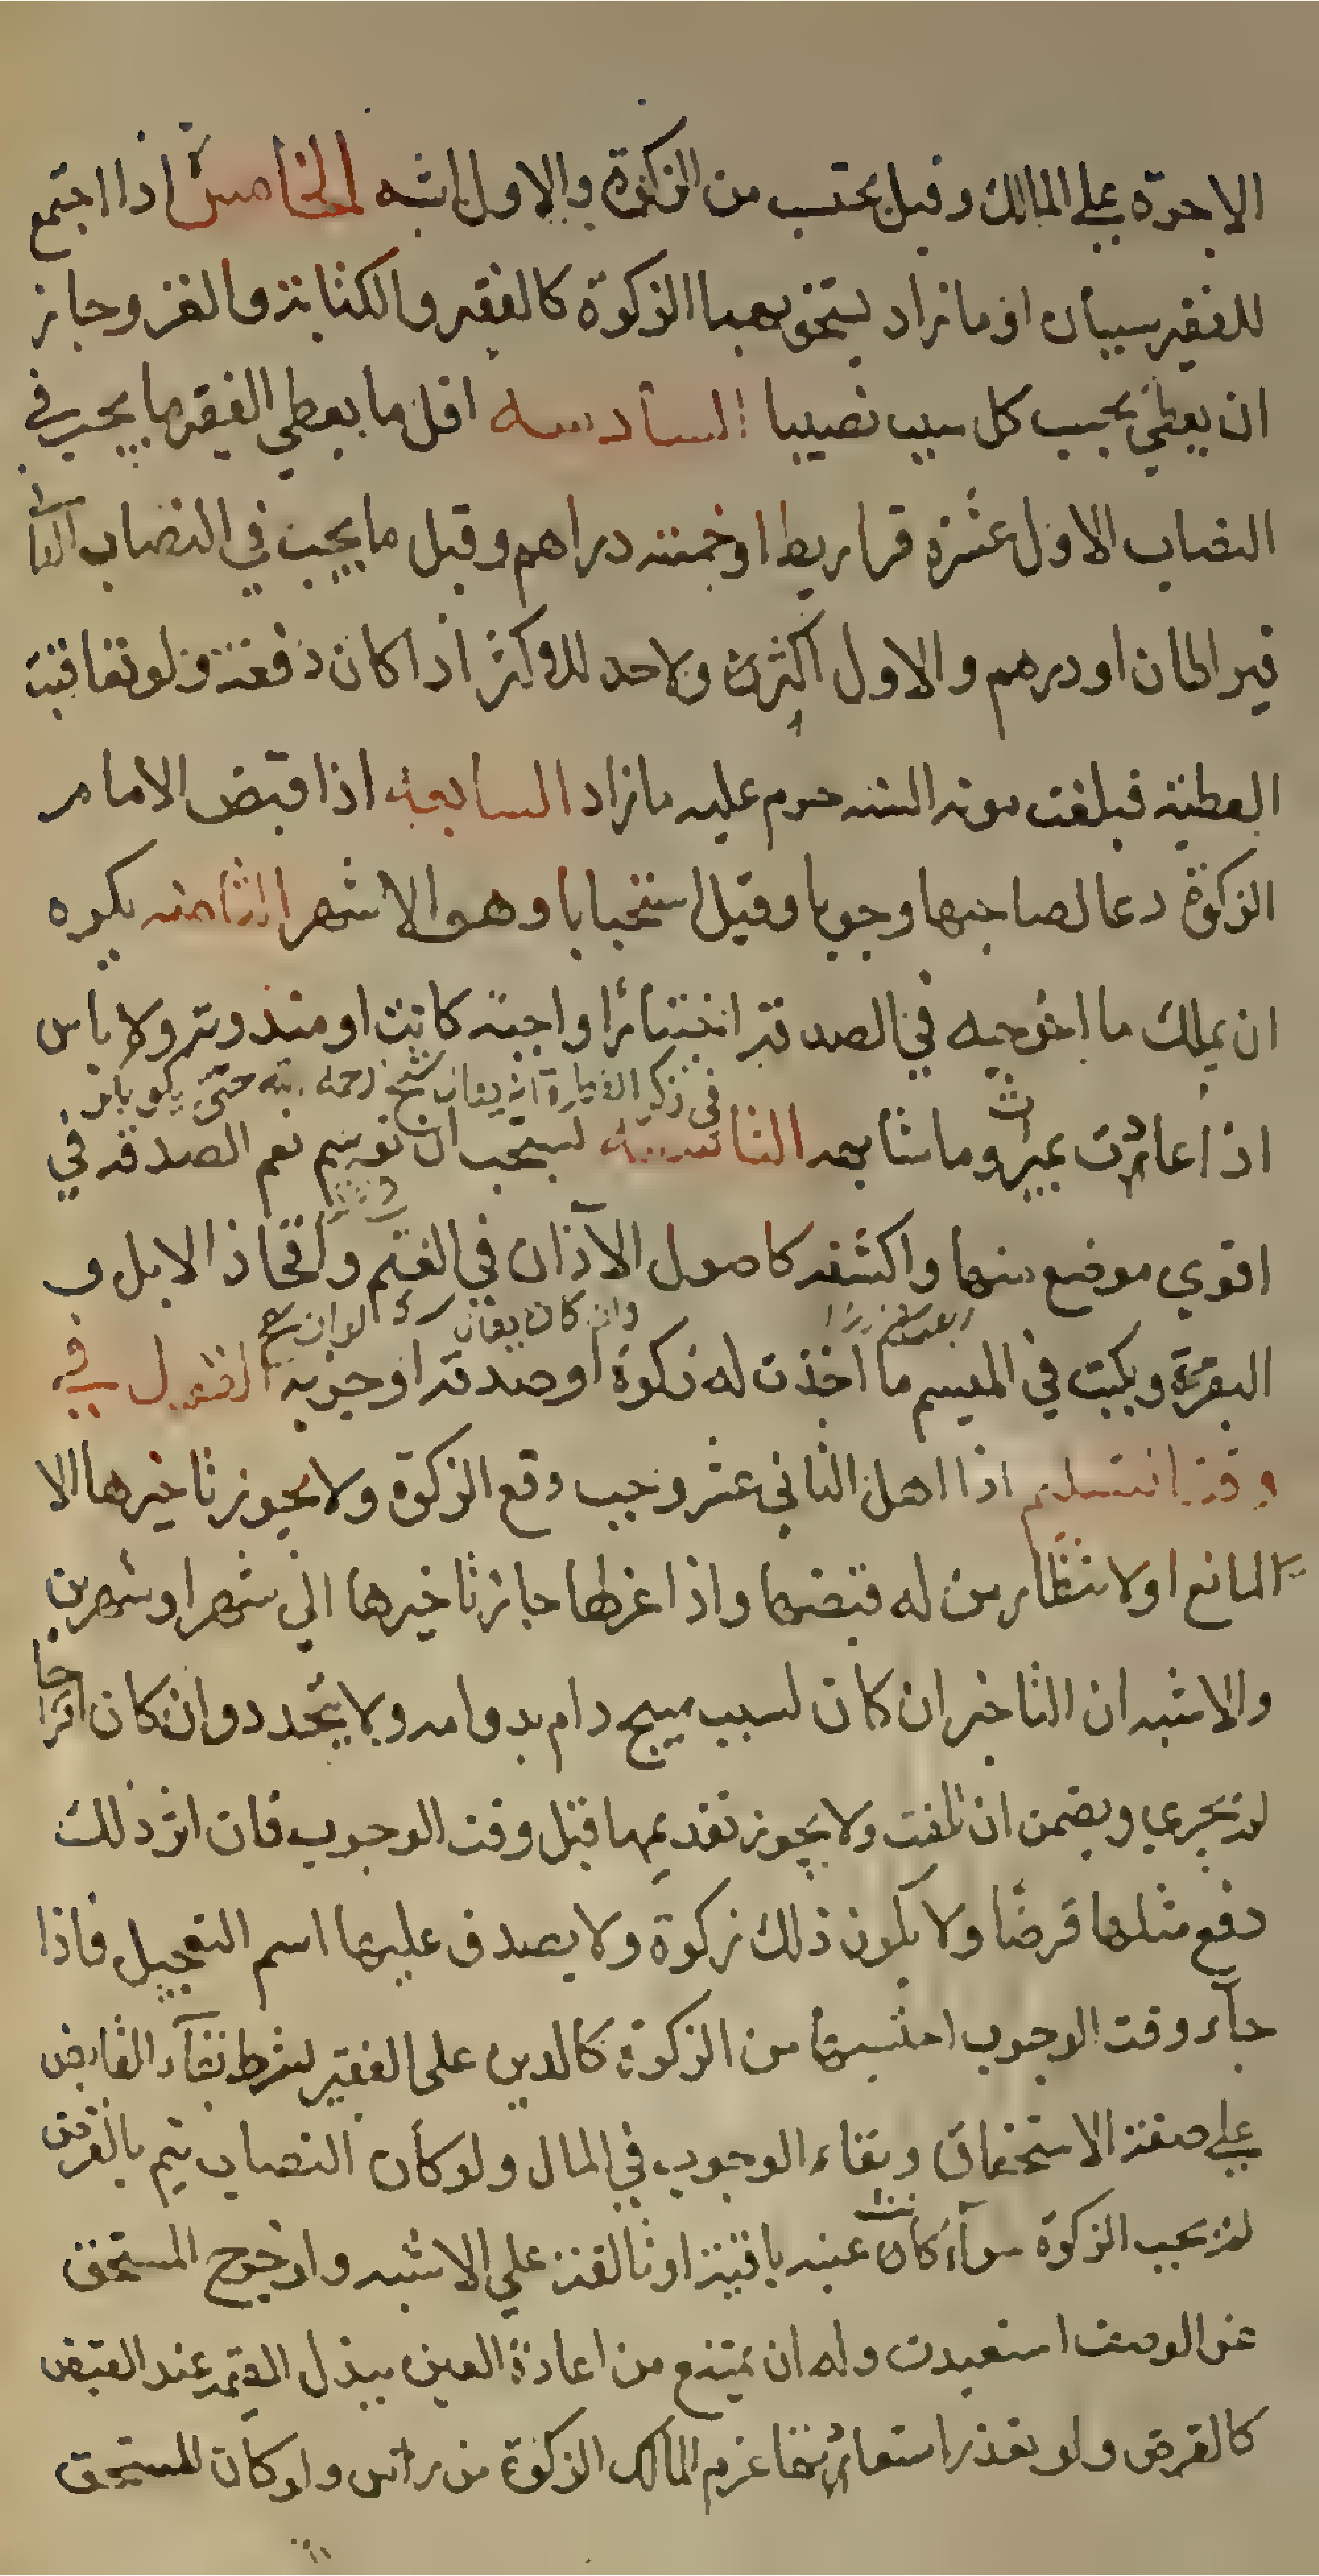 الاجرة علي المالك وقيل يحتسب من الزكوة والاول اشبه الخامسة اذا اجتمع
للفقير سببان او ما زاد يستحق بهما الزكوة كالفقر والكتابة والغزو جاز
ان يعطي بحسب كل سبب نصيبا السادسه اقل ما يعطي الفقير ما يجب في
النصاب الاول عشرة قراريط او خمسة دراهم وقيل ما يجب في النصاب الثا
قيراطان او درهم والاول اكثر ولا حد للاكثر اذا كان دفعة ولو تعاقبت
العطية فبلغت مونة السنه حرم عليه ما زاد السابعة اذا قبض الامام
الزكوة دعا لصاحبها وجوبا وقيل استحبابا وهو الاشهر الثامنه يكره
ان يملك ما اخرجه في الصدقة اختيارا واجبة كانت او مندوبة ولا باس
اذا عادت بميراث وما شابهه التاسعه يستحب ان يوسم نعم الصدقه في
اقوي موضع منها واكشفه كاصول الآذان في الغنم وافخاذ الابل و
البقرة ويكتب في الميسم ما اخذت له زكوة او صدقة او جزية القول في
وقت التسليم اذا اهل الثاني عشر وجب دفع الزكوة ولا يجوز تاخيرها الا
المانع او لانتظار من له قبضها واذا عزلها جاز تاخيرها الي شهر او شهرين
والاشبه ان التاخير ان كان لسبب مبيح دام بدوامه ولا يتحدد وان كان اقتراحا
لم يجز ويضمن ان تلفت ولا يجوز تقديمها قبل وقت الوجوب فان اثر ذلك
دفع مثلها قرضا ولا يكون ذلك زكوة ولا يصدق عليها اسم التعجيل فاذا
جآء وقت الوجوب احتسبها من الزكوة كالدين على الفقير بشرط بقآء القابض
علي صفة الاستحقاق وبقاء الوجوب في المال ولو كان النصاب يتم بالقرض
لم تجب الزكوة سوآء كانت عينه باقية او تالفة علي الاشبه ولو خرج المستحق
عن الوصف استعيدت وله ان يمتنع من اعادة العين ببذل القيمة عند القبض
كالقرض ولو تعذر استعادتها غرم المالك الزكوة من راس ولو كان المستحق